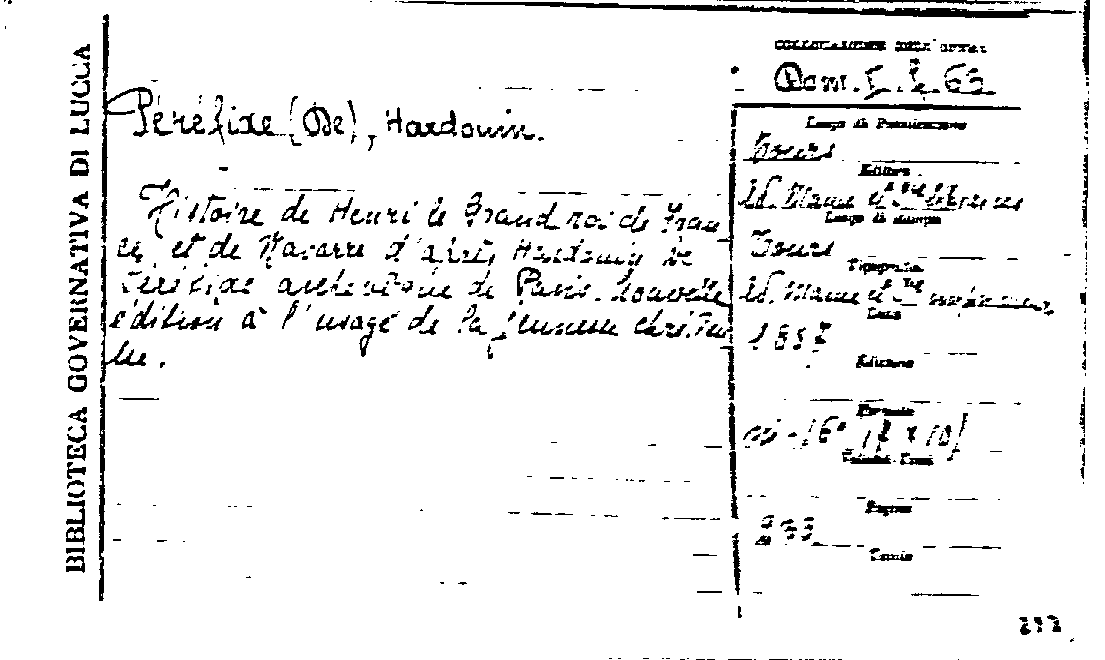 BIBLIOTECA GOVERNATIVA DI LUCCA
Péréfixe (De), Hardouin.
Histoire de Henri le Grand roi de Fran
ce, et de Navarre d'après Hardouin De
Péréfixe archevêque de Paris. Nouvelle
édition à l'usage de la jeunesse chrétien
ne.
COLLOCAZIONE DELL'OPERA
Dom. 63
Luogo di Pubblicazione
Tours
Editore
Ad. Mame et
Luogo di stampa
Tours
Tipografia
Ad. Mame et
Data
1857
Edizione
Formato
in-16° 17 x 10
Pagine
233
Tomie